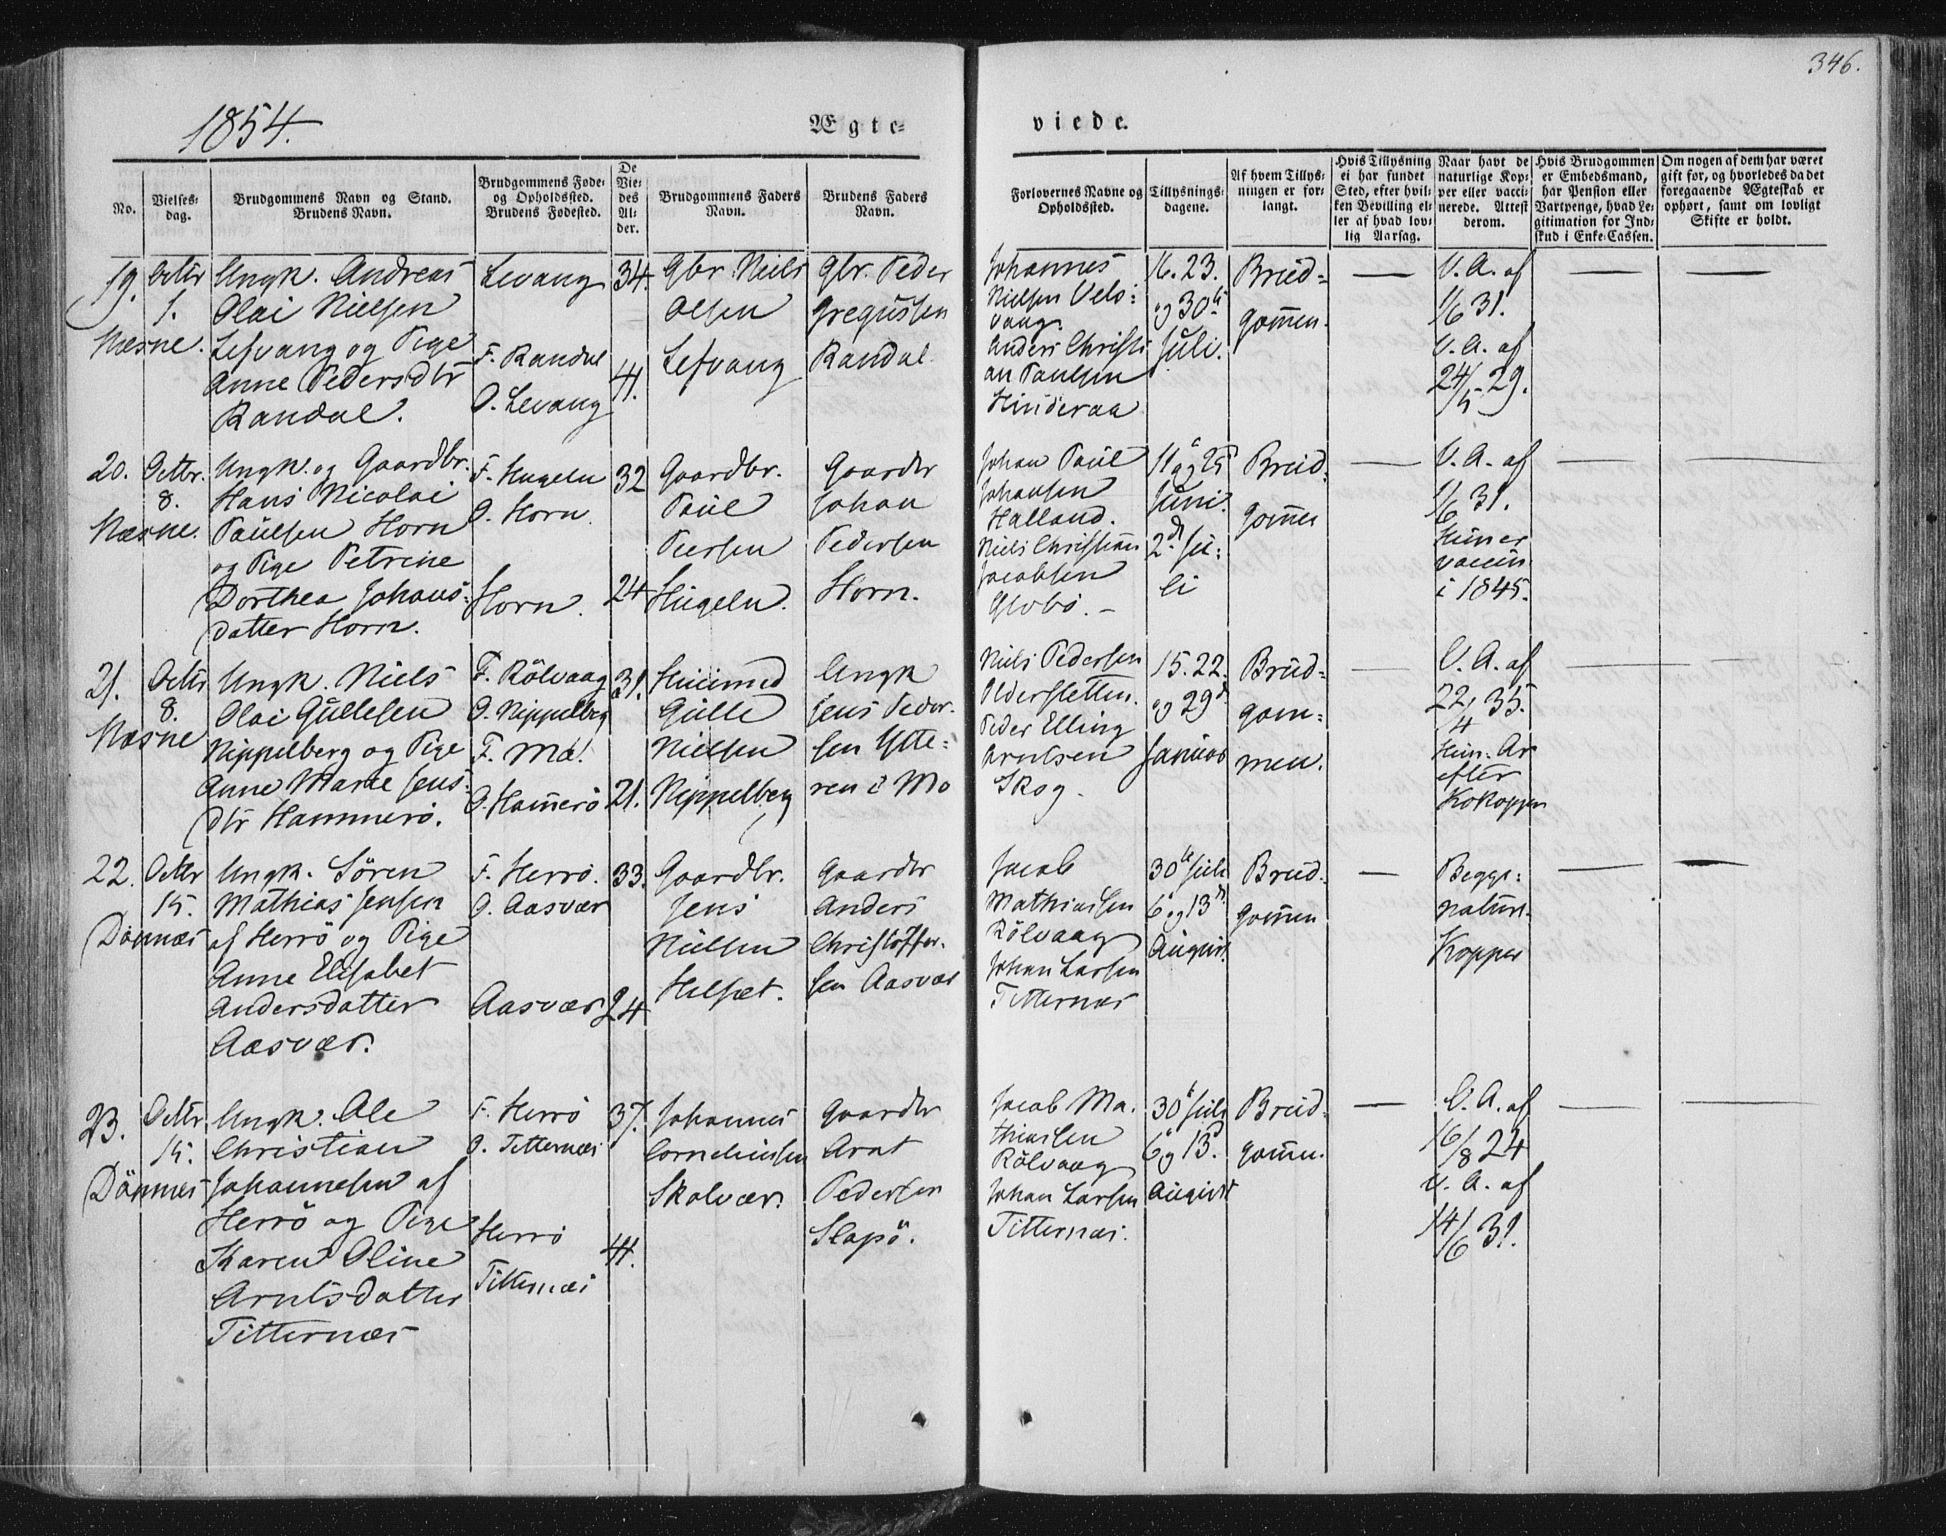 346.
1854.
Ægte=
viede.
No.
Vielses=
dag.
Brudgommens Navn og Stand.
Brudens Navn.
Brudgommens Føde=
og Opholdssted.
Brudens Fødested.
De
Vie=
des
Al=
der.
Brudgommens Faders
Navn.
Brudens Faders
Navn.
Forlovernes Navne og
Opholdssted.
Tillysnings=
dagene.
Af hvem Tillys=
ningen er for=
langt.
Hvis Tillysning
ei har fundet
Sted, efter hvil=
ken Bevilling el=
ler af hvad lov=
lig Aarsag.
Naar havt de
naturlige Kop=
per eller vacci=
nerede. Attest
derom.
Hvis Brudgommen
er Embedsmand,
har Pension eller
Vartpenge, hvad Le=
gitimation for Ind=
skud i Enke-Cassen.
Om nogen af dem har været
gift før, og hvorledes da det
foregaaende Ægteskab er
ophørt, samt om lovligt
Skifte er holdt.
19.
Octbr
1.
Næsne.
Ungk. Andreas
Olai Nielsen
Lefvang og Pige
Anne Pedersdtr
Randal.
Levang
F. Randal
O. Levang
34.
41.
Gbr. Niels
Olsen
Lefvang
Gbr. Peder
Gregussen
Randal
Johannes
Nielsen Vels=
vaag.
Anders Christi
an Paulsen
Hinderaa
16. 23.
og 30te
Juli.
Brud=
gommen.
V. A. af
1/6 31.
V. A. af
24/5 29.
20.
Octbr.
8.
Næsne.
Ungk. og Gaardbr.
Hans Nicolai
Paulsen Horn
og Pige Petrine
Dorthea Johans=
datter Horn.
F. Hugeln
O. Horn.
Horn.
32
24
Gaardbr.
Paul
Peersen
Hugeln.
Gaardbr
Johan
Pedersen
Horn.
Johan Paul
Johansen
Halland.
Niels Christian
Jacobsen
11te og 25
Juni.
2den Ju=
li
Brud=
gommen
V. A. af
1/6 31.
Hun er
vaccin
i 1845.
21.
Octbr
8.
Næsne
Ungk. Niels
Olai Gullesen
Nippelberg og Pige
Anne Marie Jens=
dtr Hammerö.
F. Rölvaag
O. Nippelberg
F. Mo.
O. Hamerö
31.
21.
Huusmd
Gulle
Nielsen
Nippelberg
Ungk
Jens Peder=
sen Ytte=
ren i Mo
Niels Pedersen
Olderskletten.
Peder Elling
Arntsen
Skog.
15. 22.
og 29de
Januar
Brud=
gom=
men.
V. A. af
22/4 35.
Hun. Ar
efter
Kokopper
22.
Octbr
15.
Dönnæs
Ungk. Sören
Mathias Jensen
af Herrö og Pige
Anne Elisabet
Andersdatter
Aasvær.
F. Herrö.
O. Aasvær
Aasvær
33.
24
Gaardbr.
Jens
Nielsen
Helsæt.
Gaardbr
Anders
Christoffer=
sen Aasvær
Jacob
Mathiassen
Rölvaag
Johan Larsen
Titternæs
30te Juli
6te og 13de
August
Brud=
gommen
Begge=
naturl.
Kopper
23.
Octbr
15.
Dönnæs
Ungk. Ole
Christian
Johannesen af
Herrö og Pige
Karen Oline
Arntsdatter
Titternæs
F. Herrö
O. Titternæs
Herrö
Titternæs
37.
41.
Johannes
Corneliussen
Skalvær.
Gaardbr
Arnt
Pedersen
Slapö.
Jacob Ma=
thiassen
Rölvaag
Johan Larsen
Titternæs.
30te Juli
6te og 13de.
August
Brud=
gomm.
V. A. af
16/8 24
V. A. af
14/6 31.